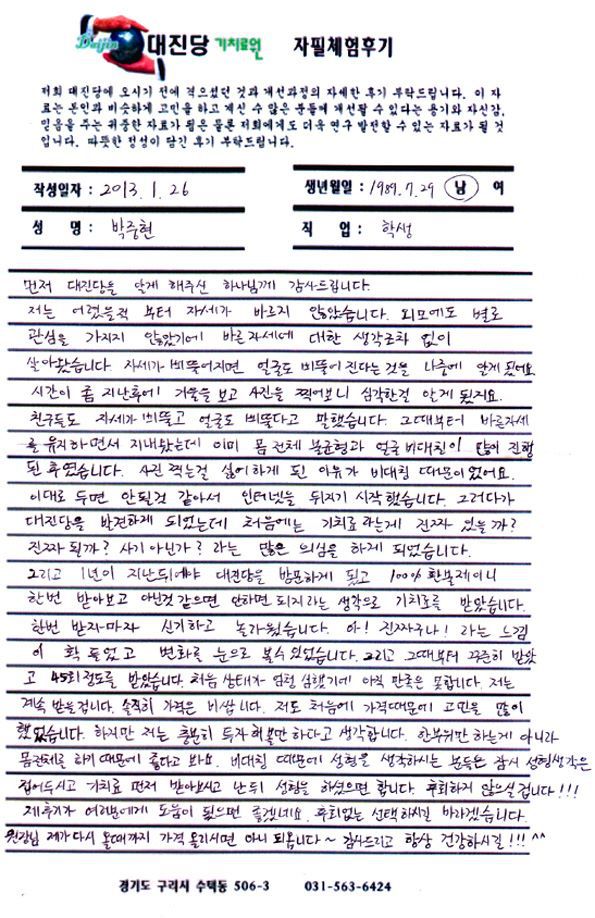 Daijin 대진당 기치료원 자필체험후기
저희 대진당에 오시기 전에 겪으셨던 것과 개선과정의 자세한 후기 부탁드립니다. 이 자
료는 본인과 비슷하게 고민을 하고 계신 수 많은 분들께 개선될 수 있다는 용기와 자신감,
믿음을 주는 귀중한 자료가 됨은 물론 저희에게도 더욱 연구 발전할 수 있는 자료가 될 것
입니다. 따뜻한 정성이 담긴 후기 부탁드립니다.
작성일자 : 2013. 1. 26 생년월일 : 1989. 7. 29 남 여
성 명 : 박중현 직 업 : 학생
먼저 대진당을 알게 해주신 하나님께 감사드립니다.
저는 어렸을적 부터 자세가 바르지 않았습니다. 외모에도 별로
관심을 가지지 않았기에 바른자세에 대한 생각조차 없이
살아왔습니다 자세가 삐뚤어지면 얼굴도 삐뚤어 진다는것을 나중에 알게 됐어요
시간이 좀 지난후에 거울을 보고 사진을 찍어보니 심각한걸 알게 됬지요.
친구들도 자세가 삐뚤고 얼굴도 삐뚤다고 말했습니다. 그때부터 바른자세
를 유지하면서 지내왔는데 이미 몸 전체 불균형과 얼굴 비대칭이 많이 진행
된 후였습니다. 사진 찍는걸 싫어하게 된 이유가 비대칭 때문이었어요.
이대로 두면 안될것 같아서 인터넷을 뒤지기 시작했습니다. 그러다가
대진당을 발견하게 되었는데 처음에는 기치료라는게 진짜 있을까?
진짜 될까? 사기아닌가? 라는 많은 의심을 하게 되었습니다.
그리고 1년이 지난뒤에야 대진당을 방문하게 됬고 100% 환불제이니
한번 받아보고 아닌것 같으면 안하면 되지라는 생각으로 기치료를 받았습니다.
한번 받자마자 신기하고 놀라웠습니다. 아! 진짜구나! 라는 느낌
이 확 들었고 변화를 눈으로 볼수있었습니다. 그리고 그때부터 꾸준히 받았
고 45회정도를 받았습니다. 처음 상태가 엄청 심했기에 아직 만족은 못합니다. 저는
계속 받을겁니다. 솔직히 가격은 비쌉니다. 저도 처음에 가격때문에 고민을 많이
했었습니다. 하지만 저는 충분히 투자 해볼만 하다고 생각합니다. 한부위만 하는게 아니라
몸전체를 하기 때문에 좋다고 봐요. 비대칭 때문에 성형을 생각하시는 분들은 잠시 성형생각은
접어두시고 기치료 먼저 받아보시고 난뒤 성형을 하셨으면 합니다. 후회하지 않으실 겁니다!!!
제후기가 여러분에게 도움이 됬으면 좋겠네요. 후회없는 선택하시길 바라겠습니다.
원장님 제가다시 올때까지 가격 올리시면 아니 되옵니다~ 감사드리고 항상 건강하시길!!! ^^
경기도 구리시 수택동 506-3 031-563-6424